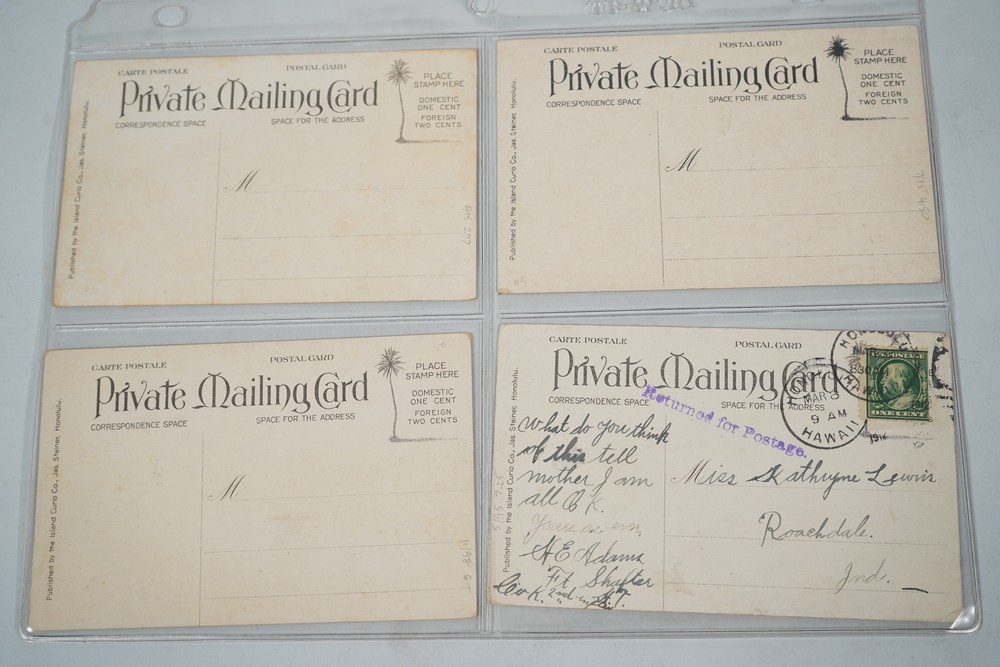 CARTE POSTALE
POSTAL CARD
Private Mailing Card
CORRESPONDENCE SPACE
SPACE FOR THE ADDRESS
PLACE
STAMP HERE
DOMESTIC
ONE CENT
FOREIGN
TWO CENTS
M
Published by the Island Curio Co., Jas. Steiner, Honolulu.
CARTE POSTALE
POSTAL CARD
Private Mailing Card
CORRESPONDENCE SPACE
SPACE FOR THE ADDRESS
PLACE
STAMP HERE
DOMESTIC
ONE CENT
FOREIGN
TWO CENTS
M
Published by the Island Curio Co., Jas. Steiner, Honolulu.
CARTE POSTALE
POSTAL CARD
Private Mailing Card
CORRESPONDENCE SPACE
SPACE FOR THE ADDRESS
PLACE
STAMP HERE
DOMESTIC
ONE CENT
FOREIGN
TWO CENTS
M
Published by the Island Curio Co., Jas. Steiner, Honolulu.
CARTE POSTALE
POSTAL CARD
Private Mailing Card
CORRESPONDENCE SPACE
SPACE FOR THE ADDRESS
Returned for Postage.
HONOLULU
MAR 8
9 AM
HAWAII
1912
U.S. POSTAGE
ONE CENT
What do you think
of this tell
mother I am
all O K.
Yours as ever,
H E Adams
Ft. Shafter
Co. K. 2nd H.T.
Miss Kathryne Lewis
Roachdale.
Ind.
Published by the Island Curio Co., Jas. Steiner, Honolulu.